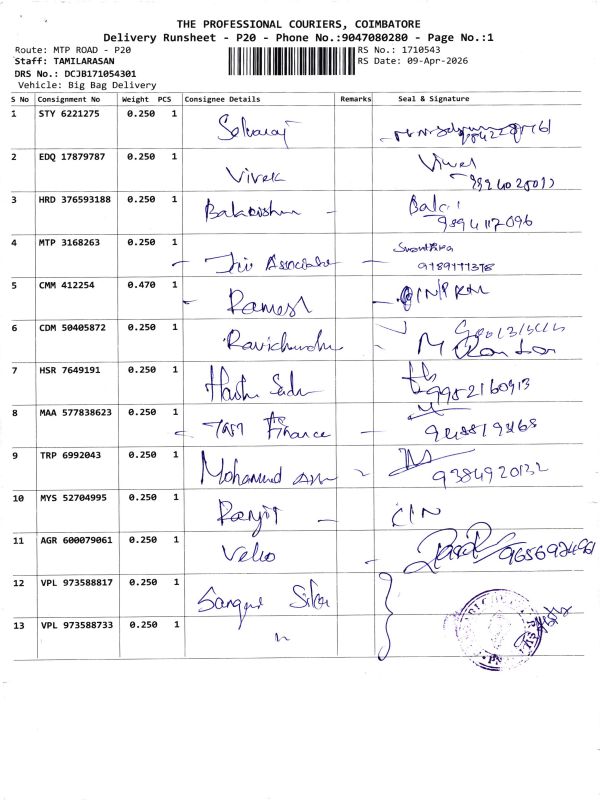 THE PROFESSIONAL COURIERS, COIMBATORE
Delivery Runsheet - P20 - Phone No.:9047080280 - Page No.:1
Route: MTP ROAD - P20 RS No.: 1710543
Staff: TAMILARASAN RS Date: 09-Apr-2026
DRS No.: DCJB171054301
Vehicle: Big Bag Delivery
S No Consignment No Weight PCS Consignee Details Remarks Seal & Signature
1 STY 6221275 0.250 1 Selvaraj
2 EDQ 17879787 0.250 1 Vivek
3 HRD 376593188 0.250 1 Balakrishnan Balaji
9894117096
4 MTP 3168263 0.250 1 Associate
5 CMM 412254 0.470 1 Ramesh
6 CDM 50405872 0.250 1 Ravichandran
7 HSR 7649191 0.250 1 9952160913
8 MAA 577838623 0.250 1 Finance
9 TRP 6992043 0.250 1 Mohamed 9384920132
10 MYS 52704995 0.250 1 Ranjit
11 AGR 600079061 0.250 1
12 VPL 973588817 0.250 1
13 VPL 973588733 0.250 1 "